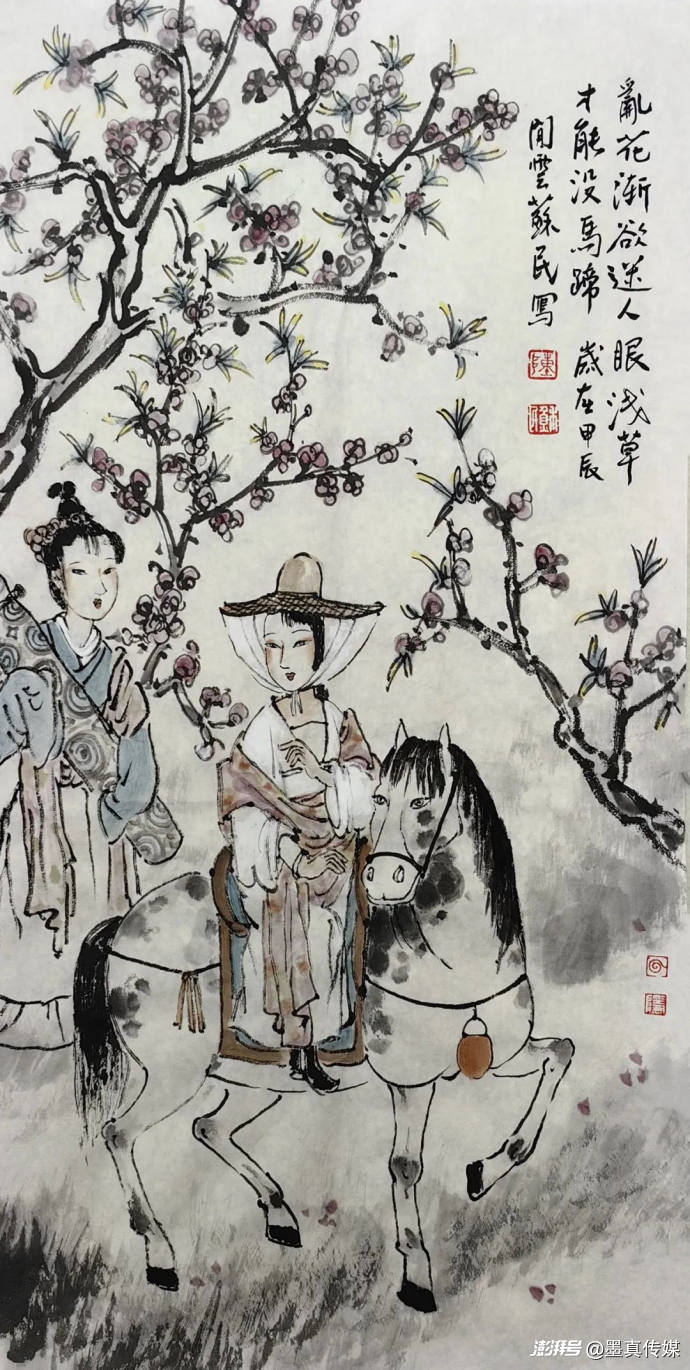 亂花渐欲迷人眼浅草
才能没馬蹄 歲在甲辰
閒雲蘇民寫
澎湃号@墨真传媒